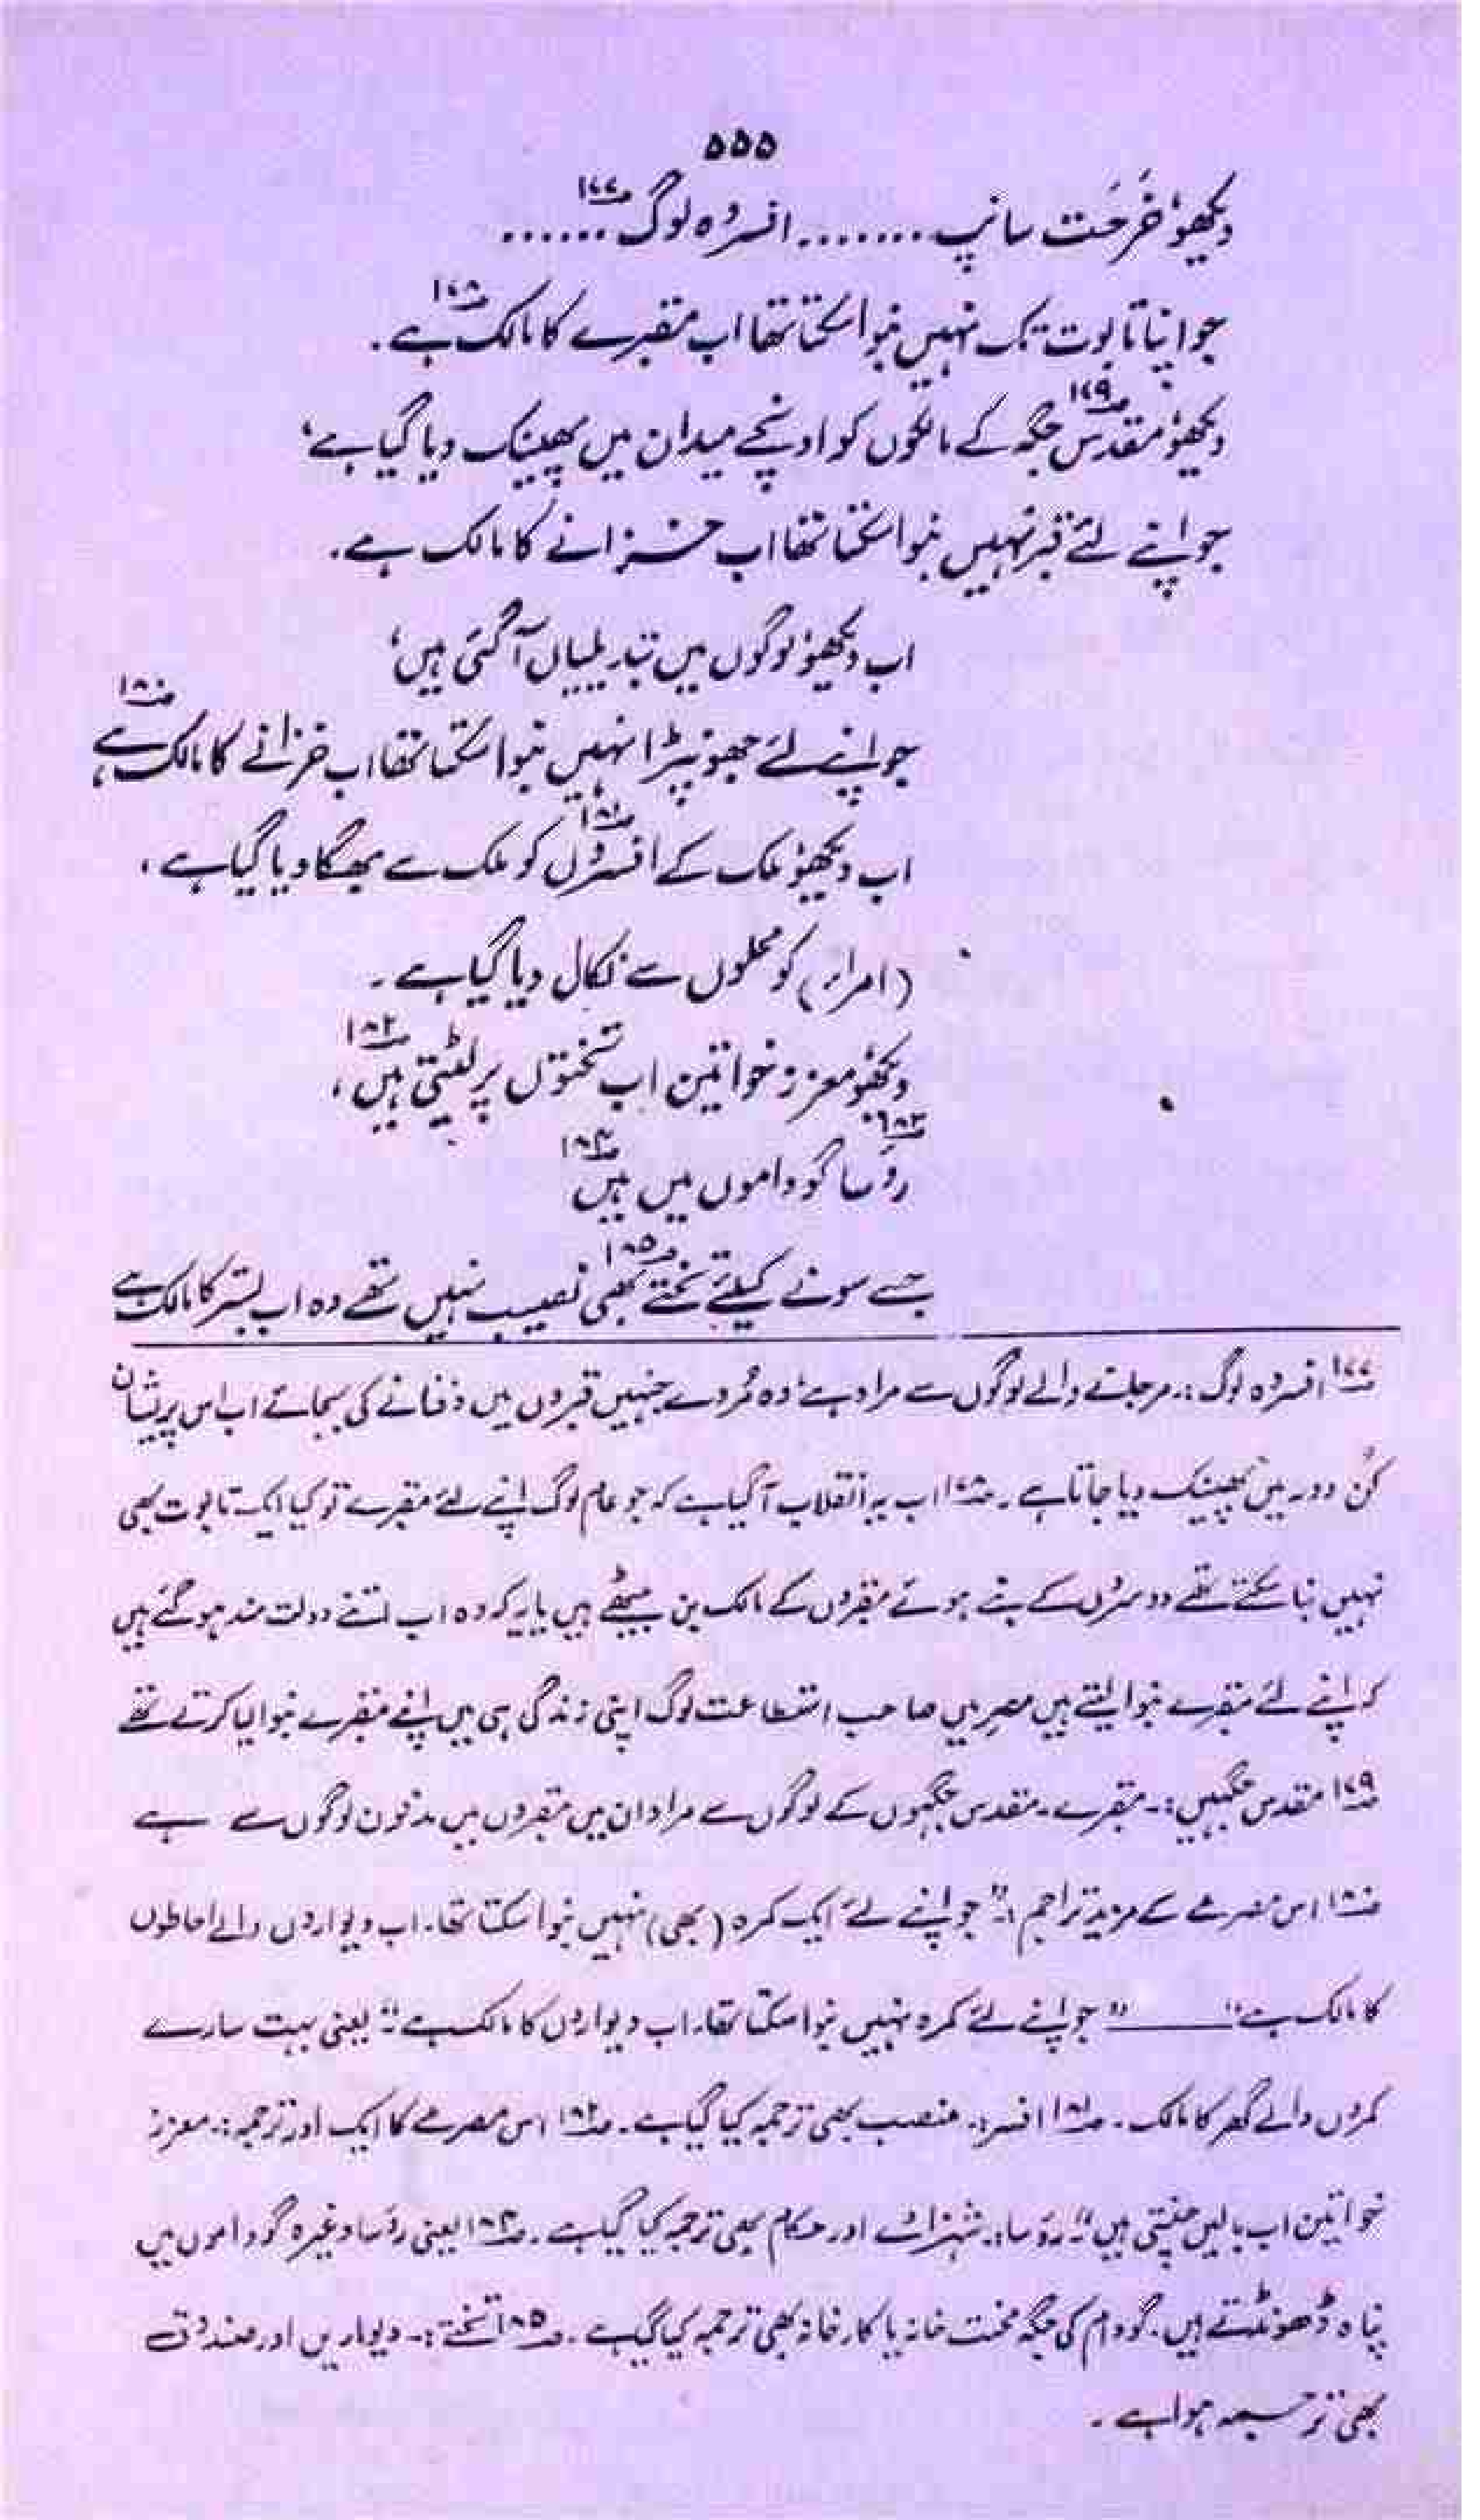 ۵۵۵
دیکھو، خَرخَت سانپ ........ افسردہ لوگ ؁۱۷۷ ......
جو اپنا تابوت تک نہیں بنوا سکتا تھا اب مقبرے کا مالک ہے۔ ؁۱۷۸
دیکھو، مقدس ؁۱۷۹ جگہ کے مالکوں کو اونچے میدان میں پھینک دیا گیا ہے،
جو اپنے لئے قبر نہیں بنوا سکتا تھا اب خزانے کا مالک ہے۔
اب دیکھو، لوگوں میں تبدیلیاں آگئی ہیں،
جو اپنے لئے جھونپڑا نہیں بنوا سکتا تھا اب خزانے کا مالک ہے ؁۱۸۰
اب دیکھو، ملک کے افسروں ؁۱۸۱ کو ملک سے بھگا دیا گیا ہے،
(امراء) کو محلوں سے نکال دیا گیا ہے۔
دیکھو، معزز خواتین اب تختوں پر لیٹتی ہیں ؁۱۸۲،
رؤسا ؁۱۸۳ گوداموں میں ہیں ؁۱۸۴
جسے سونے کیلئے تختے ؁۱۸۵ بھی نصیب نہیں تھے وہ اب بستر کا مالک ہے
؁۱۷۷ افسردہ لوگ :۔ مر جانے والے لوگوں سے مراد ہے، وہ مُردے جنہیں قبروں میں دفنانے کی بجائے اب اس پریشان
کُن دور میں پھینک دیا جاتا ہے۔ ؁۱۷۸ اب یہ انقلاب آگیا ہے کہ جو عام لوگ اپنے لئے مقبرے تو کیا ایک تابوت بھی
نہیں بنا سکتے تھے دوسروں کے بنے ہوئے مقبروں کے مالک بن بیٹھے ہیں یا یہ کہ وہ اب اتنے دولت مند ہو گئے ہیں
کہ اپنے لئے مقبرے بنوا لیتے ہیں مصر میں صاحب استطاعت لوگ اپنی زندگی ہی میں اپنے مقبرے بنوا لیا کرتے تھے
؁۱۷۹ مقدس جگہیں :۔ مقبرے۔ مقدس جگہوں کے لوگوں سے مراد ان میں مقبروں میں مدفون لوگوں سے ہے
؁۱۸۰ اس مصرعے کے مزید تراجم :۔ "جو اپنے لئے ایک کمرہ (بھی) نہیں بنوا سکتا تھا۔ اب دیواروں والے احاطوں
کا مالک ہے" ــــــ "جو اپنے لئے کمرہ نہیں بنوا سکتا تھا۔ اب دیواروں کا مالک ہے"۔ یعنی بہت سارے
کمروں والے گھر کا مالک۔ ؁۱۸۱ افسر :۔ منصب بھی ترجمہ کیا گیا ہے۔ ؁۱۸۲ اس مصرعے کا ایک اور ترجمہ :۔ معزز
خواتین اب بالیں چنتی ہیں"۔ رؤسا :۔ شہزادے اور حکام بھی ترجمہ کیا گیا ہے۔ ؁۱۸۴ یعنی رؤسا وغیرہ گوداموں میں
پناہ ڈھونڈتے ہیں۔ گودام کی جگہ محنت خانہ یا کارخانہ بھی ترجمہ کیا گیا ہے۔ ؁۱۸۵ تختے :۔ دیواریں اور صندوق
بھی ترجمہ ہوا ہے۔